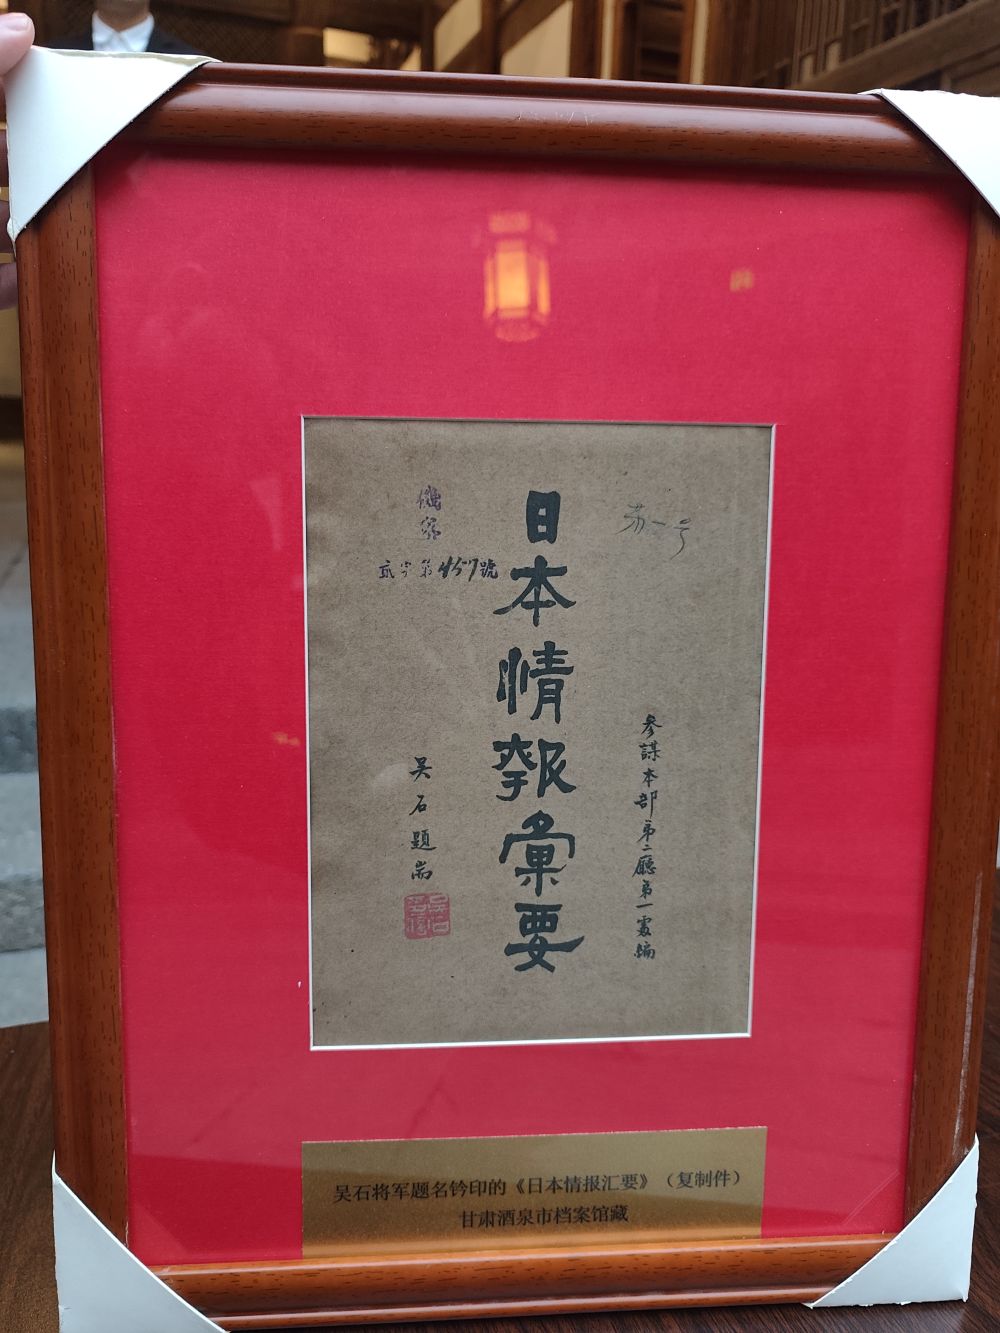 苏一号
参謀本部第二廳第一處編
日本情報彙要
機密
貳字第457號
吴石題耑
吴石将军题名钤印的《日本情报汇要》（复制件）
甘肃酒泉市档案馆藏